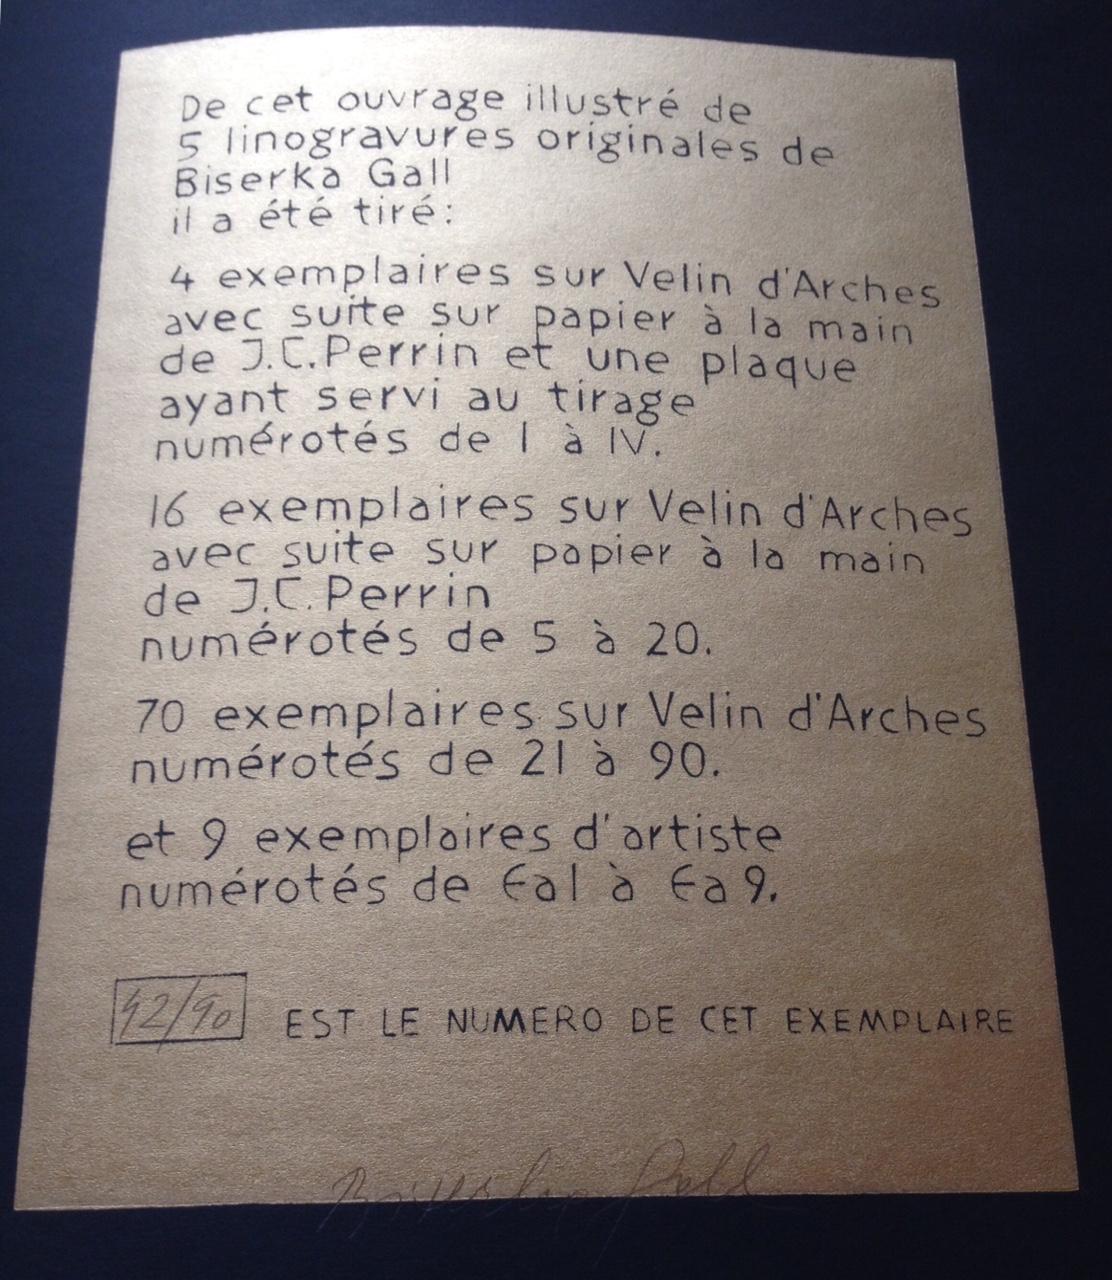 De cet ouvrage illustré de
5 linogravures originales de
Biserka Gall
il a été tiré:
4 exemplaires sur Velin d'Arches
avec suite sur papier à la main
de J.C.Perrin et une plaque
ayant servi au tirage
numérotés de I à IV.
16 exemplaires sur Velin d'Arches
avec suite sur papier à la main
de J.C.Perrin
numérotés de 5 à 20.
70 exemplaires sur Velin d'Arches
numérotés de 21 à 90.
et 9 exemplaires d'artiste
numérotés de Ea1 à Ea9.
42/90 EST LE NUMERO DE CET EXEMPLAIRE
Biserka Gall